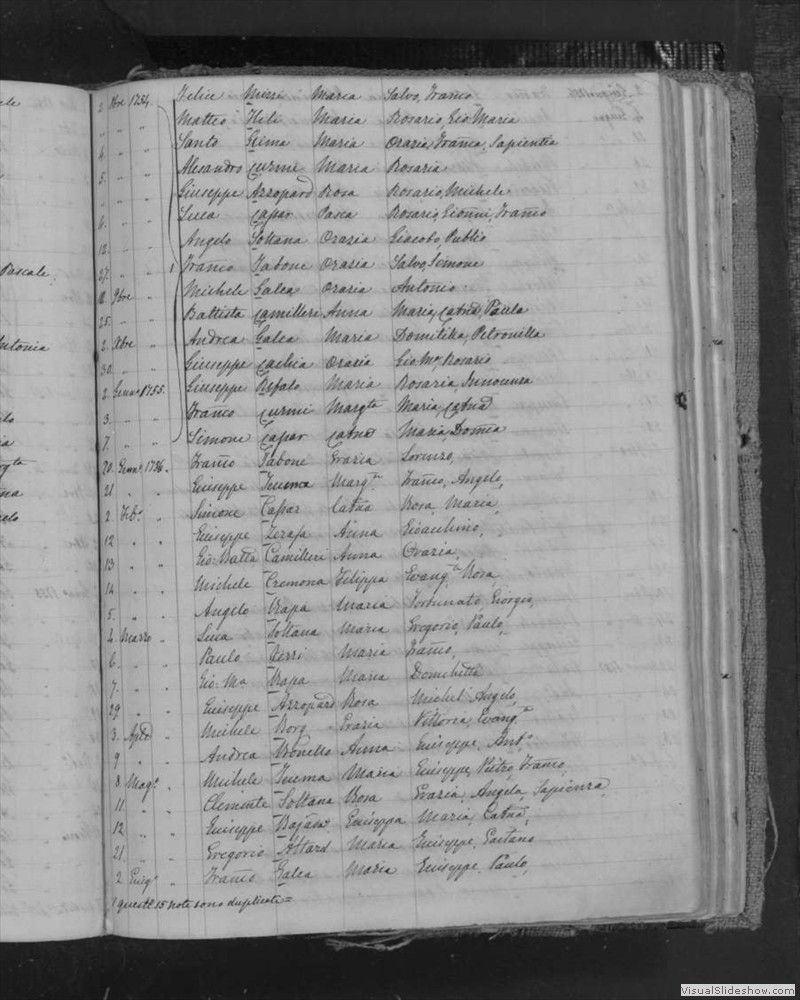 2 8bre 1754. Felice Mizzi Maria Salvo, Franco
" " " Matteo Fiteni Maria Rosario, Gio Maria
4. " " Santo Grima Maria Orazia, Franca, Sapientia
5. " " Alesandro Curmi Maria Rosaria
" " " Giuseppe Azzopard Rosa Rosario, Michele
6. " " Luca Caspar Pasca Rosario, Franco
12. " " Angelo Soltana Orazia Giacobo, Publio
27. " " Franco Tabone Orazia Salvo, Simone
18. 9bre " Michele Galea Orazia Antonio
25. " " Battista Camilleri Anna Maria, Catna, Paula
2. Xbre " Andrea Galea Maria Domitilla, Petronilla
30. " " Giuseppe Cachia Orazia Gio Ma, Rosario
2. Genn. 1755. Giuseppe Maria Rosaria, Innocenza
3. " " Franco Curmi Margta Maria, Catna
7. " " Simone Caspar Catna Maria, Domca
20. Genn. 1756. Franco Tabone Grazia Lorenzo,
21 " " Giuseppe Teuma Margta Franco, Angelo,
2. Feb. " Simone Caspar Catna Rosa, Maria,
12 " " Giuseppe Zerafa Anna
13 " " Gio: Batta Camilleri Anna Orazia,
14 " " Michele Cremona Filippa Evangta Rosa,
5. " " Angelo Rapa Maria Fortunato, Giorgio,
4. Marzo " Luca Soltana Maria Gregorio, Paulo,
6. " " Paulo Maria Franco,
7. " " Gio: Ma Rapa Maria
29 " " Giuseppe Azzopard Rosa Michel' Angelo,
3. Aple " Michele Borg Grazia Vittoria, Evangta
9 " " Andrea Bonello Anna Giuseppe, Anto
8. Mago " Michele Teuma Maria Giuseppe, Pietro, Franco,
11 " " Clemente Soltana Rosa Grazia, Angela, Sapienza,
12 " " Giuseppe Bajada Giuseppa Maria, Catna,
21 " " Gregorio Attard Maria Giuseppe, Gaetano
2 Giug. " Franco Galea Maria Giuseppe, Paulo,
queste 15 note sono duplicate =
VisualSlideshow.com